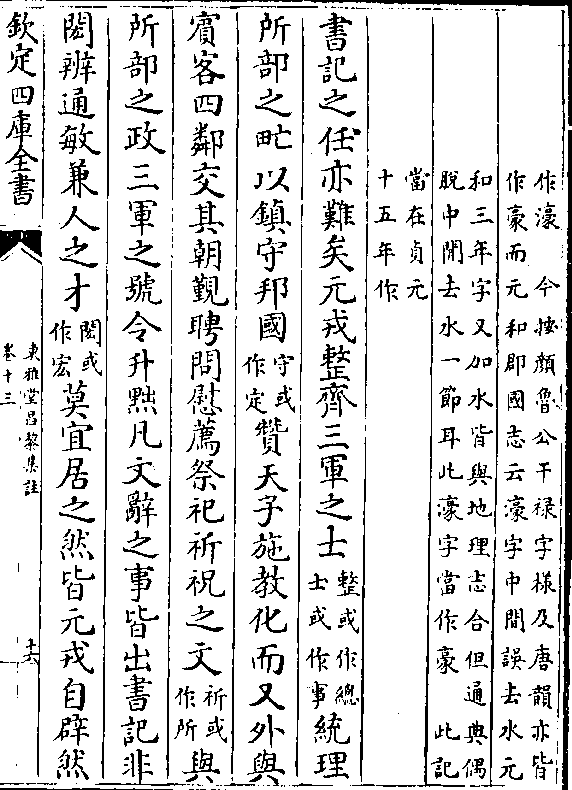 作濠　今按顔魯公干禄字様及唐韻亦皆
作豪而元和郡國志云濠字中間誤去水元
和三年字又加水皆與地理志合但通典偶
脱中間去水一節耳此濠字當作豪　此記
當在貞元
十五年作
書記之任亦難矣元戎整齊三軍之士整或作總士或作事統理
所部之甿以鎮守邦國守或作定贊天子施教化而又外與
賔客四鄰交其朝覲聘問慰薦祭祀祈祝之文祈或作所與
所部之政三軍之號令升黜凡文辭之事皆出書記非
閎辨通敏兼人之才閎或作宏莫宜居之然皆元戎自辟然
欽定四庫全書
東雅堂昌黎集註
卷十三
十六